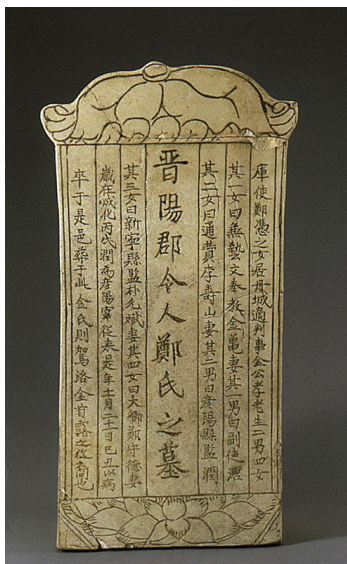 庫使鄭憑之女居丹城適判事金公孝老生二男四女
其一女曰兼藝文奉教金黽妻其一男曰副使
其二女曰通賛李壽山妻其二男曰彦陽縣監潤
晋陽郡令人鄭氏之墓
其三女曰新寧縣監朴允斌妻其四女曰大卿鄭守德妻
歲在成化丙戌潤為彦陽宰從来是年十月二十二日巳丑以病
卒于是邑葬于此金氏則駕洛金首露之後裔也